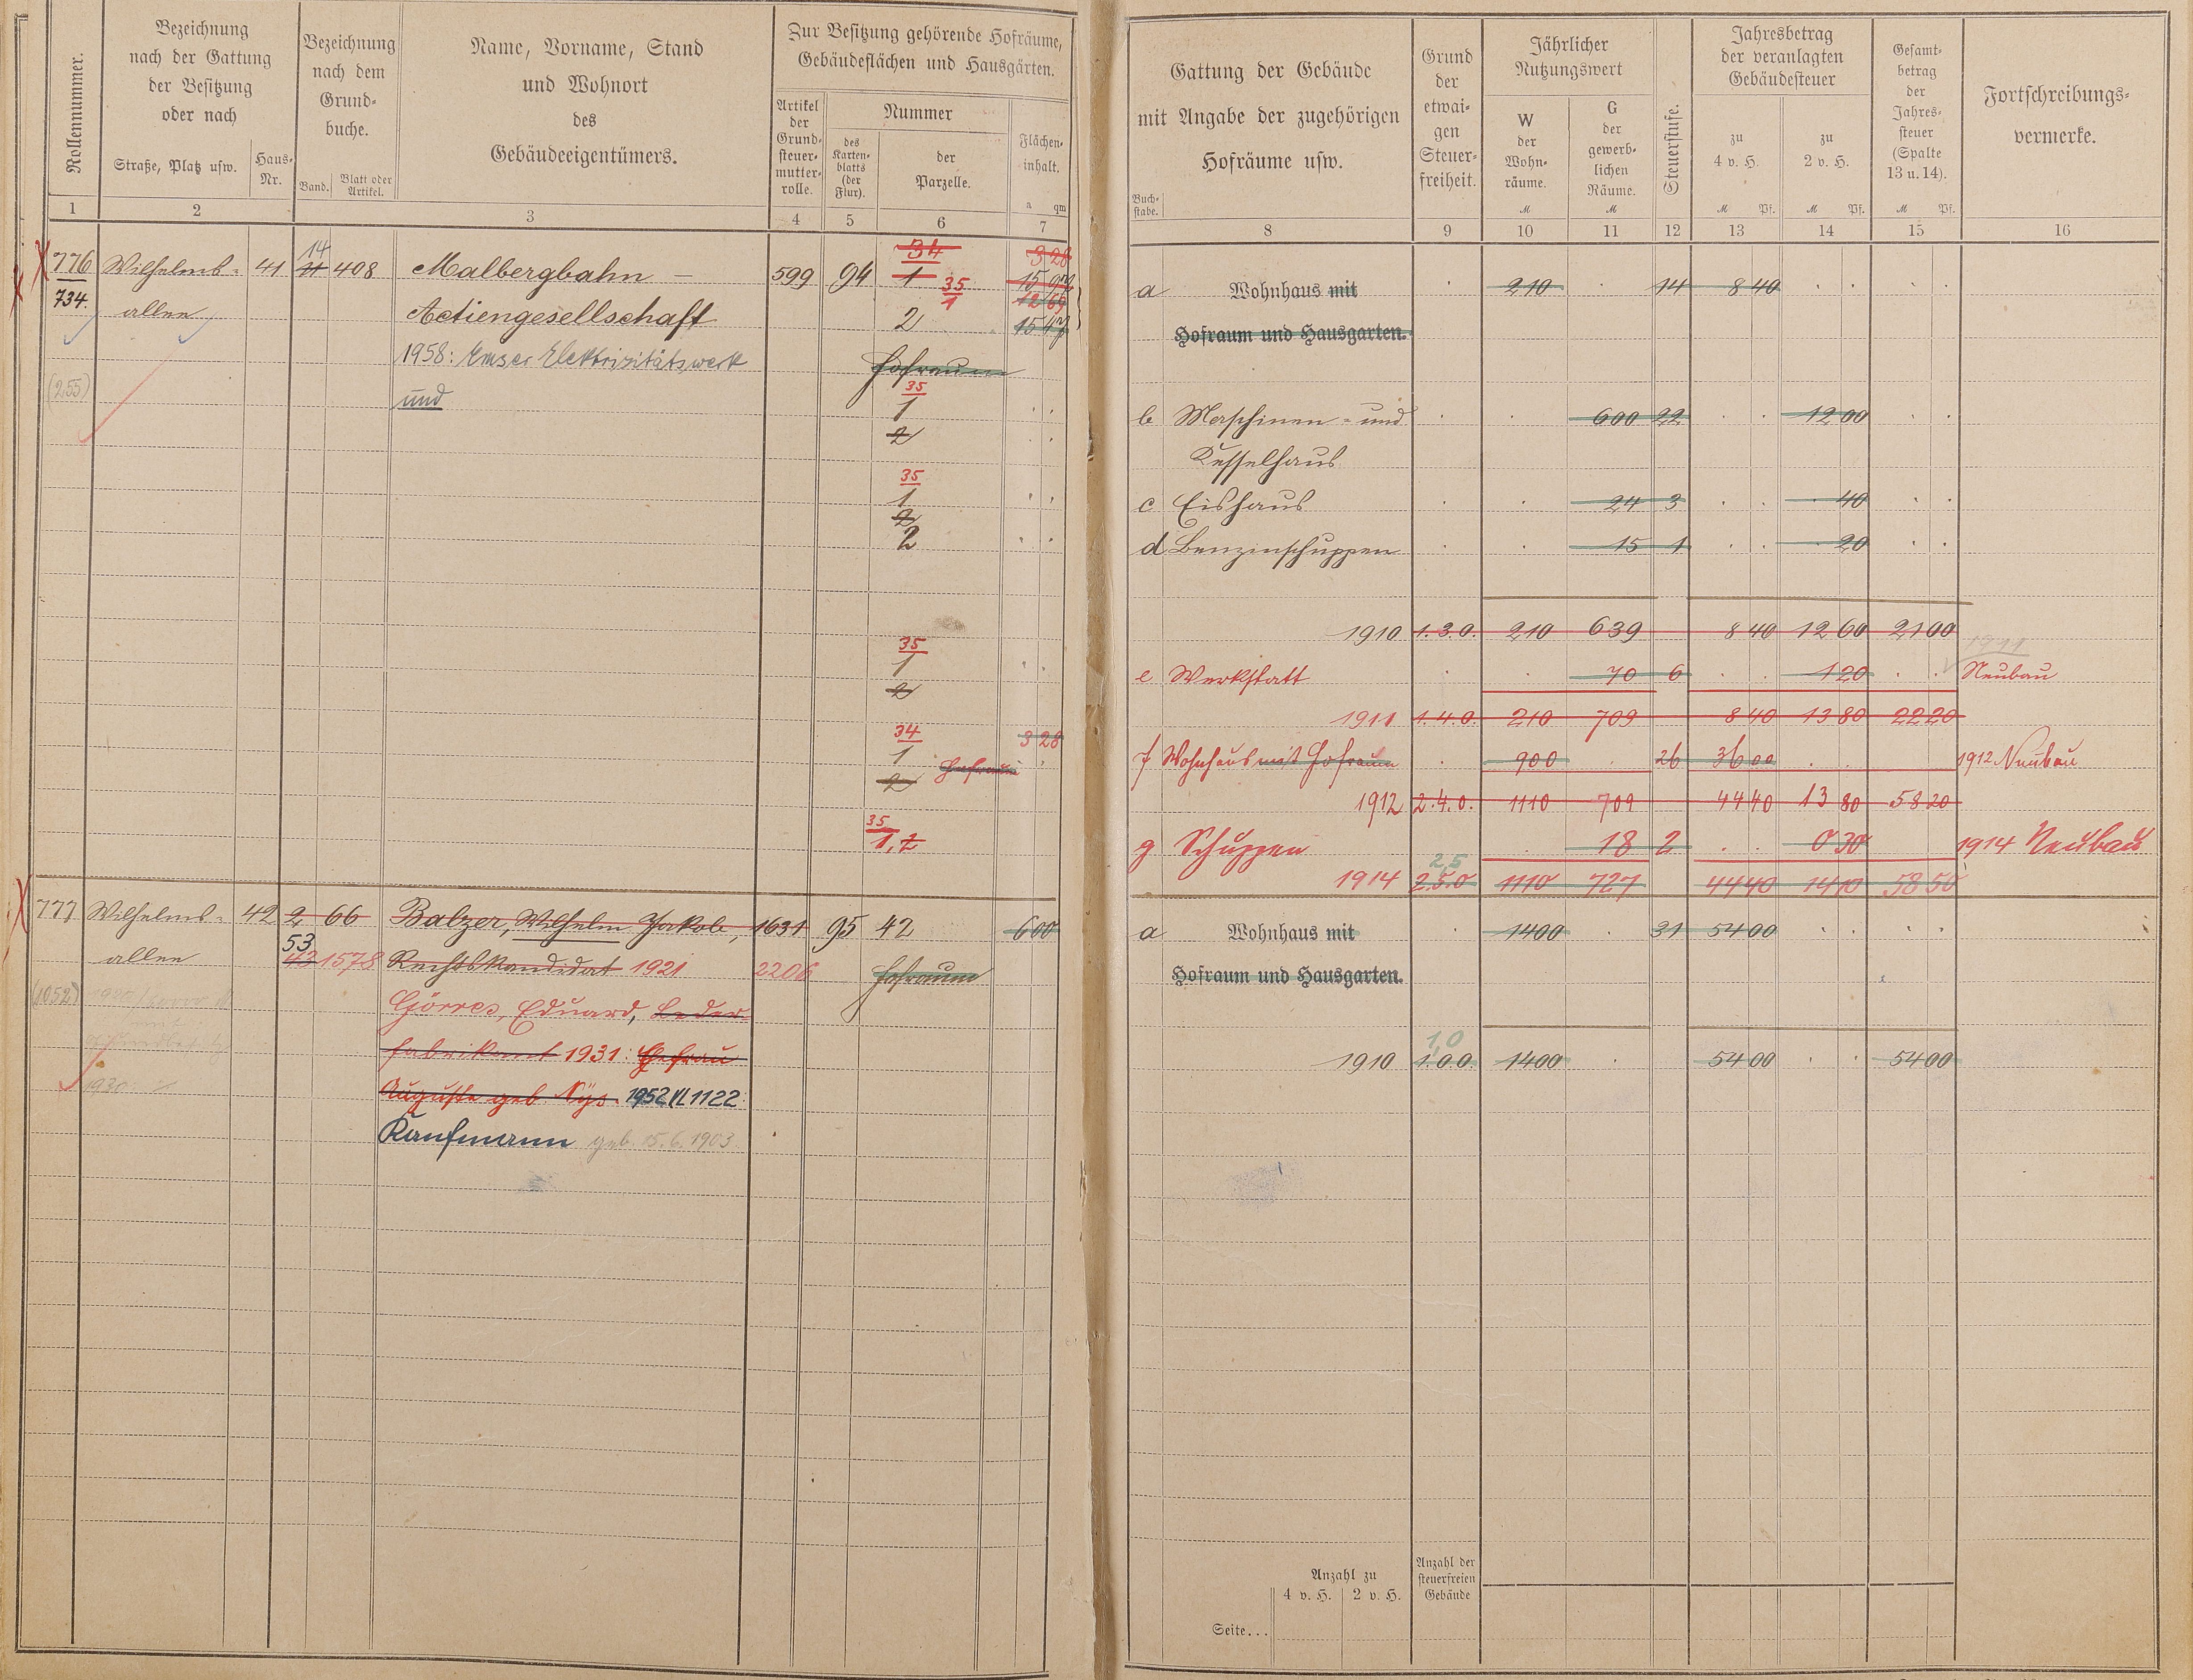 Rollennummer.
Bezeichnung
nach der Gattung
der Besitzung
oder nach
Straße, Platz usw.
Haus-
Nr.
Bezeichnung
nach dem
Grund-
buche.
Band.
Blatt oder
Artikel.
Name, Vorname, Stand
und Wohnort
des
Gebäudeeigentümers.
Zur Besitzung gehörende Hofräume,
Gebäudeflächen und Hausgärten.
Artikel
der
Grund-
steuer-
mutter-
rolle.
Nummer
des
Karten-
blatts
(der
Flur).
der
Parzelle.
Flächen-
inhalt.
a qm
1 2 3 4 5 6 7
776 Wilhelms- 41 11 408 Malbergbahn – 599 94 1
14
34
3 28
35
1
12 69
734. allee Actiengesellschaft 2 15 47
1958: Emser Elektrizitätswerk Hofraum
(255) und
35
1
2
35
1
2
2
35
1
2
34
1 3 28
2 Hofraum
35
1, 2
777 Wilhelms- 42 2 66 Balzer, Wilhelm Jakob, 1631 95 42 6 00
53
allee 43 1578 Rechtskandidat 1921 2206 Hofraum
(1052)
Görres, Eduard, Leder-
fabrikant 1931: Ehefrau
1930
Auguste geb. Nys. 1952 VL 1122:
Kaufmann geb. 15.6.1903
Gattung der Gebäude
mit Angabe der zugehörigen
Hofräume usw.
Buch-
stabe.
Grund
der
etwai-
gen
Steuer-
freiheit.
Jährlicher
Nutzungswert
W
der
Wohn-
räume.
M
G
der
gewerb-
lichen
Räume.
M
Steuerstufe.
Jahresbetrag
der veranlagten
Gebäudesteuer
zu
4 v. H.
M Pf.
zu
2 v. H.
M Pf.
Gesamt-
betrag
der
Jahres-
steuer
(Spalte
13 u. 14).
M Pf.
Fortschreibungs-
vermerke.
8 9 10 11 12 13 14 15 16
a Wohnhaus mit 210 14 8 40
Hofraum und Hausgarten.
b Maschinen- und 600 22 12 00
Kesselhaus
c Eishaus 24 3 40
d Benzinschuppen 15 1 20
1910 1.3.0. 210 639 8 40 12 60 21 00
1911
e Werkstatt 70 6 1 20 Neubau
1911 1.4.0. 210 709 8 40 13 80 22 20
f Wohnhaus mit Hofraum 900 26 36 00 1912 Neubau
1912 2.4.0. 1110 709 44 40 13 80 58 20
g Schuppen 18 2 0 30 1914 Neubau
2,5
1914 2.5.0 1110 727 44 40 14 10 58 50
a Wohnhaus mit 1400 31 54 00
Hofraum und Hausgarten.
1,0
1910 1.0.0. 1400 54 00 54 00
Anzahl zu
4 v. H. 2 v. H.
Anzahl der
steuerfreien
Gebäude
Seite...